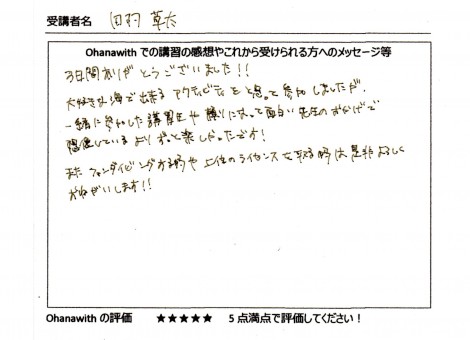 受講者名 田羽 草太
Ohanawith での講習の感想やこれから受けられる方へのメッセージ等
3日間ありがとうございました!!
大好きな海で出来るアクティビティをと思って参加しましたが、
一緒に参加した講習生や頼りになって面白い先生のおかげで
想像しているよりずっと楽しかったです!
またファンダイビングする時や上位のライセンスを取る時は是非よろしく
おねがいします!!
Ohanawith の評価 ★★★★★ 5 点満点で評価してください!